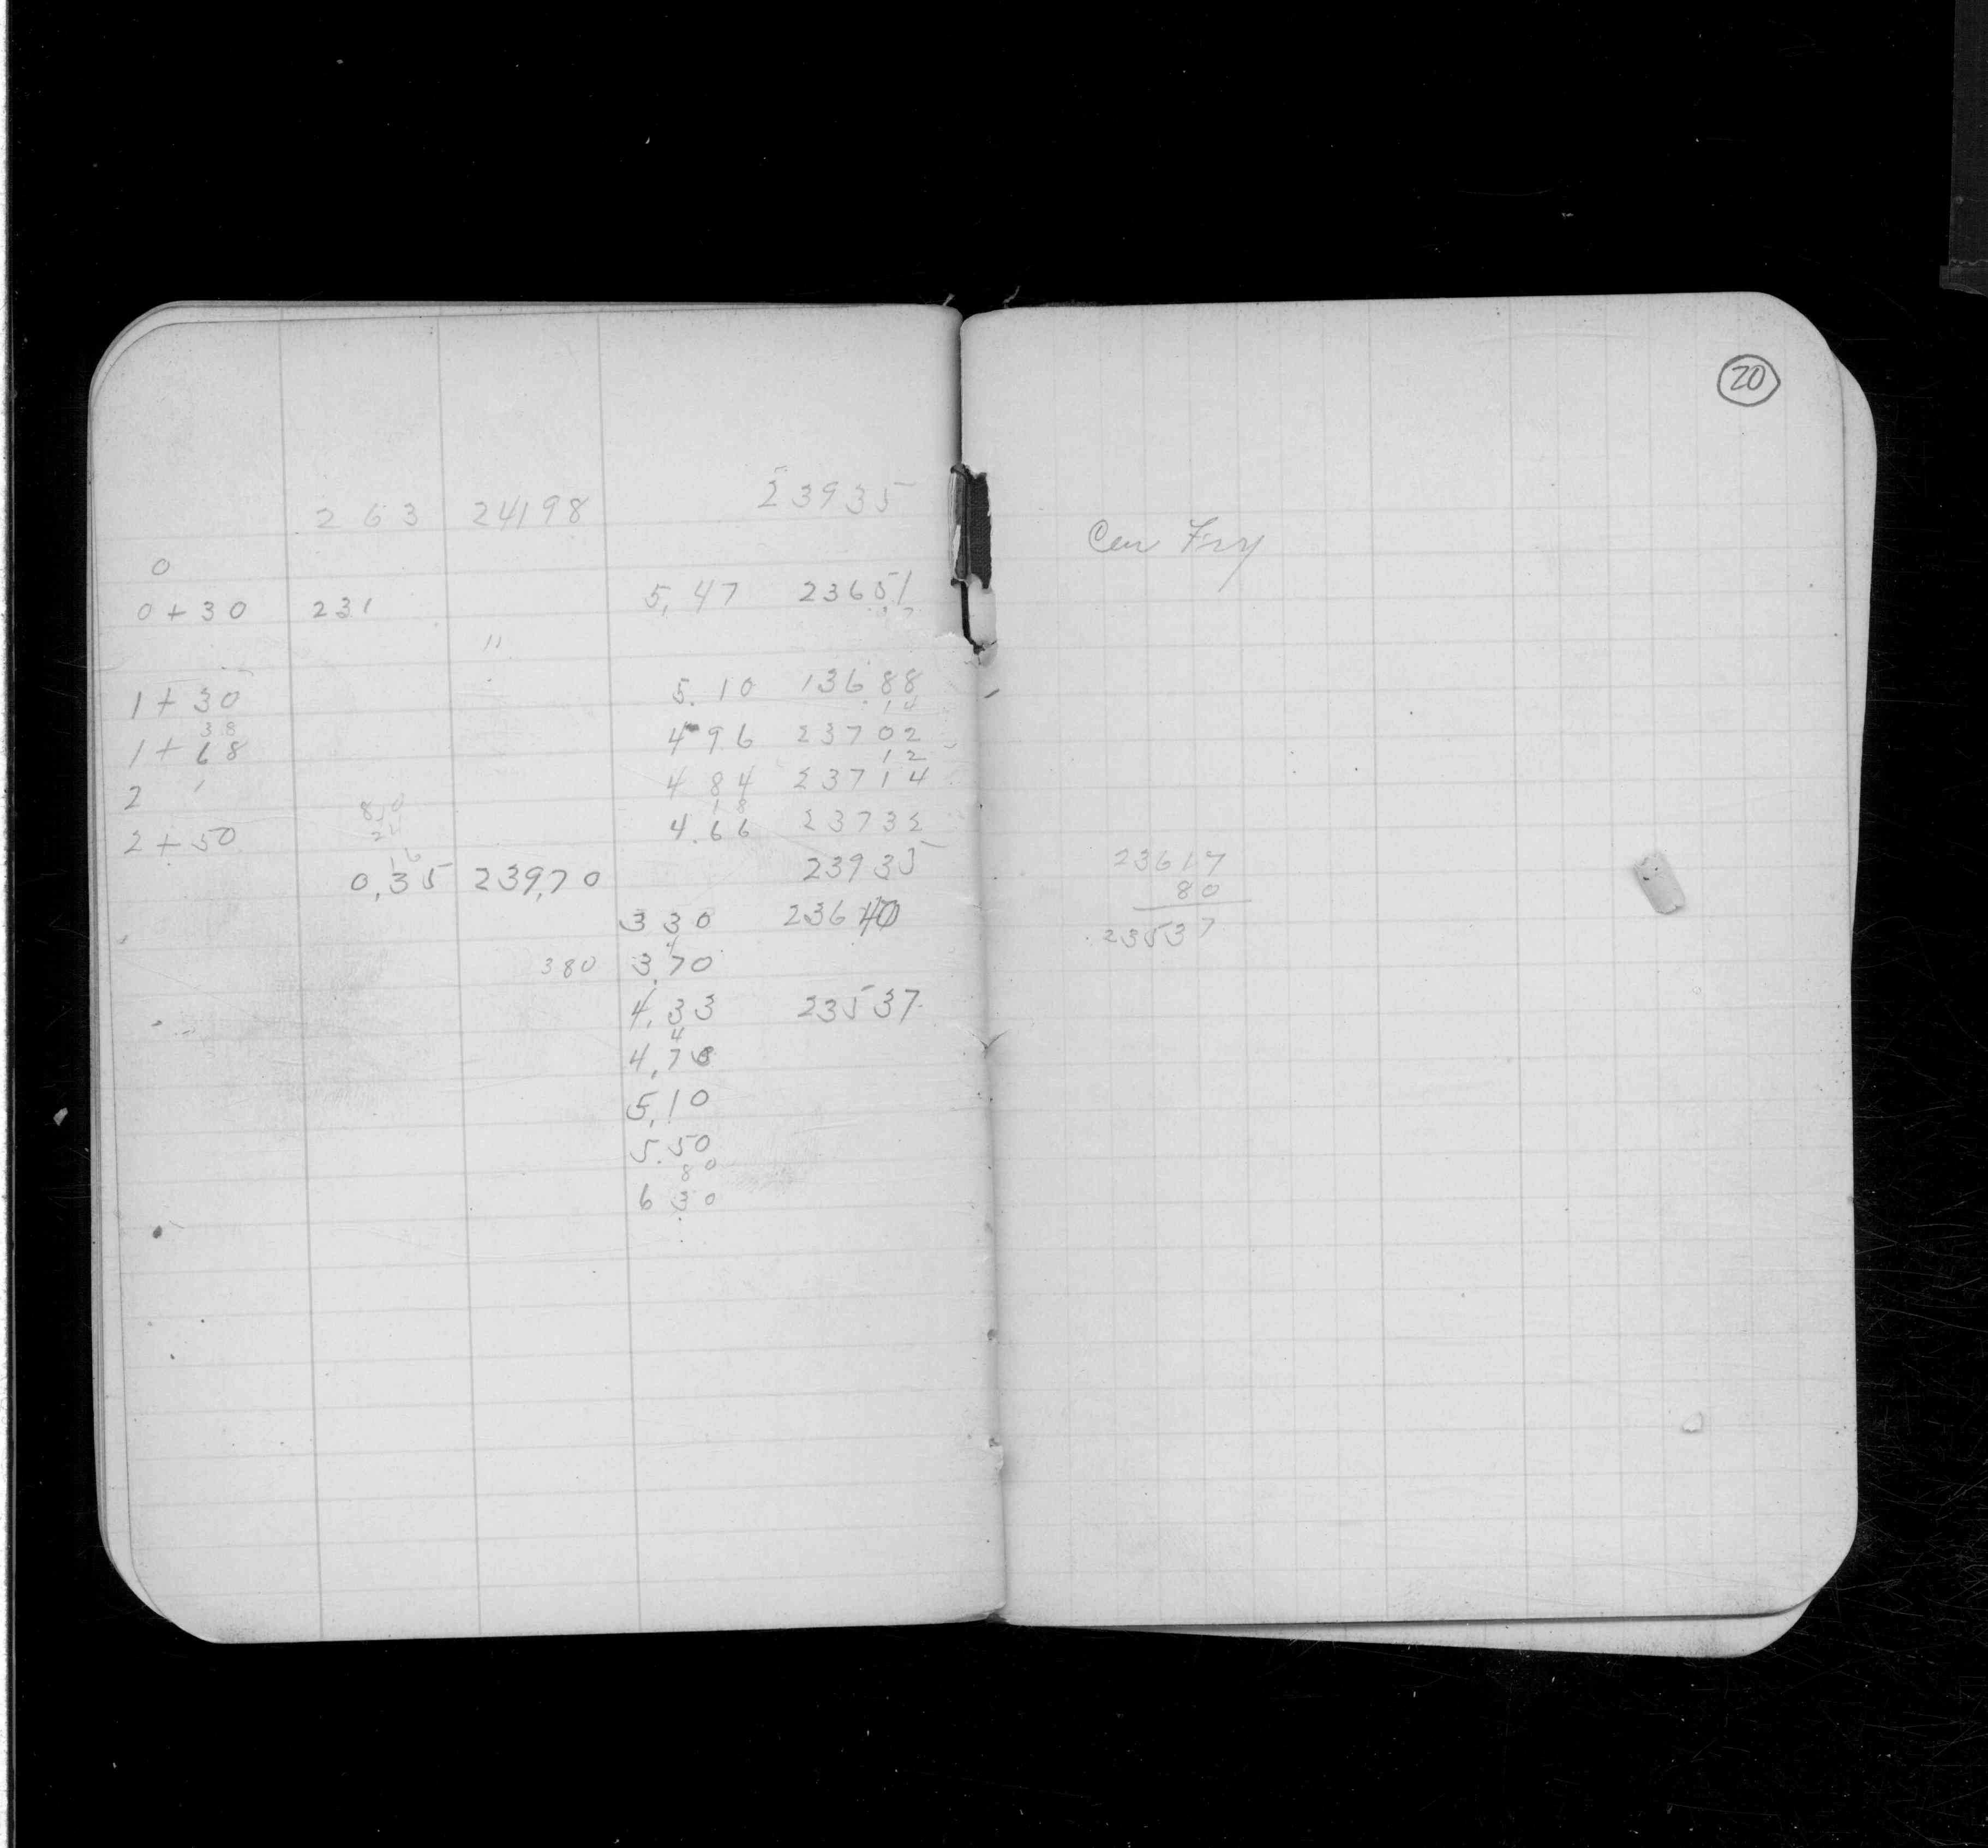 20
263 24198 23935
0
0+30 231 5,47 23651
"
1+30 5.10 13688
38 14
1+68 4 96 23702
12
2 4 84 23714
18
2+50 4.66 23732
0,35 239,70 23935
3 30 23640
4
380 3,70
4,33 23537
4
4,78
5,10
5.50
80
6 30
Cen Fry
23617
80
23537